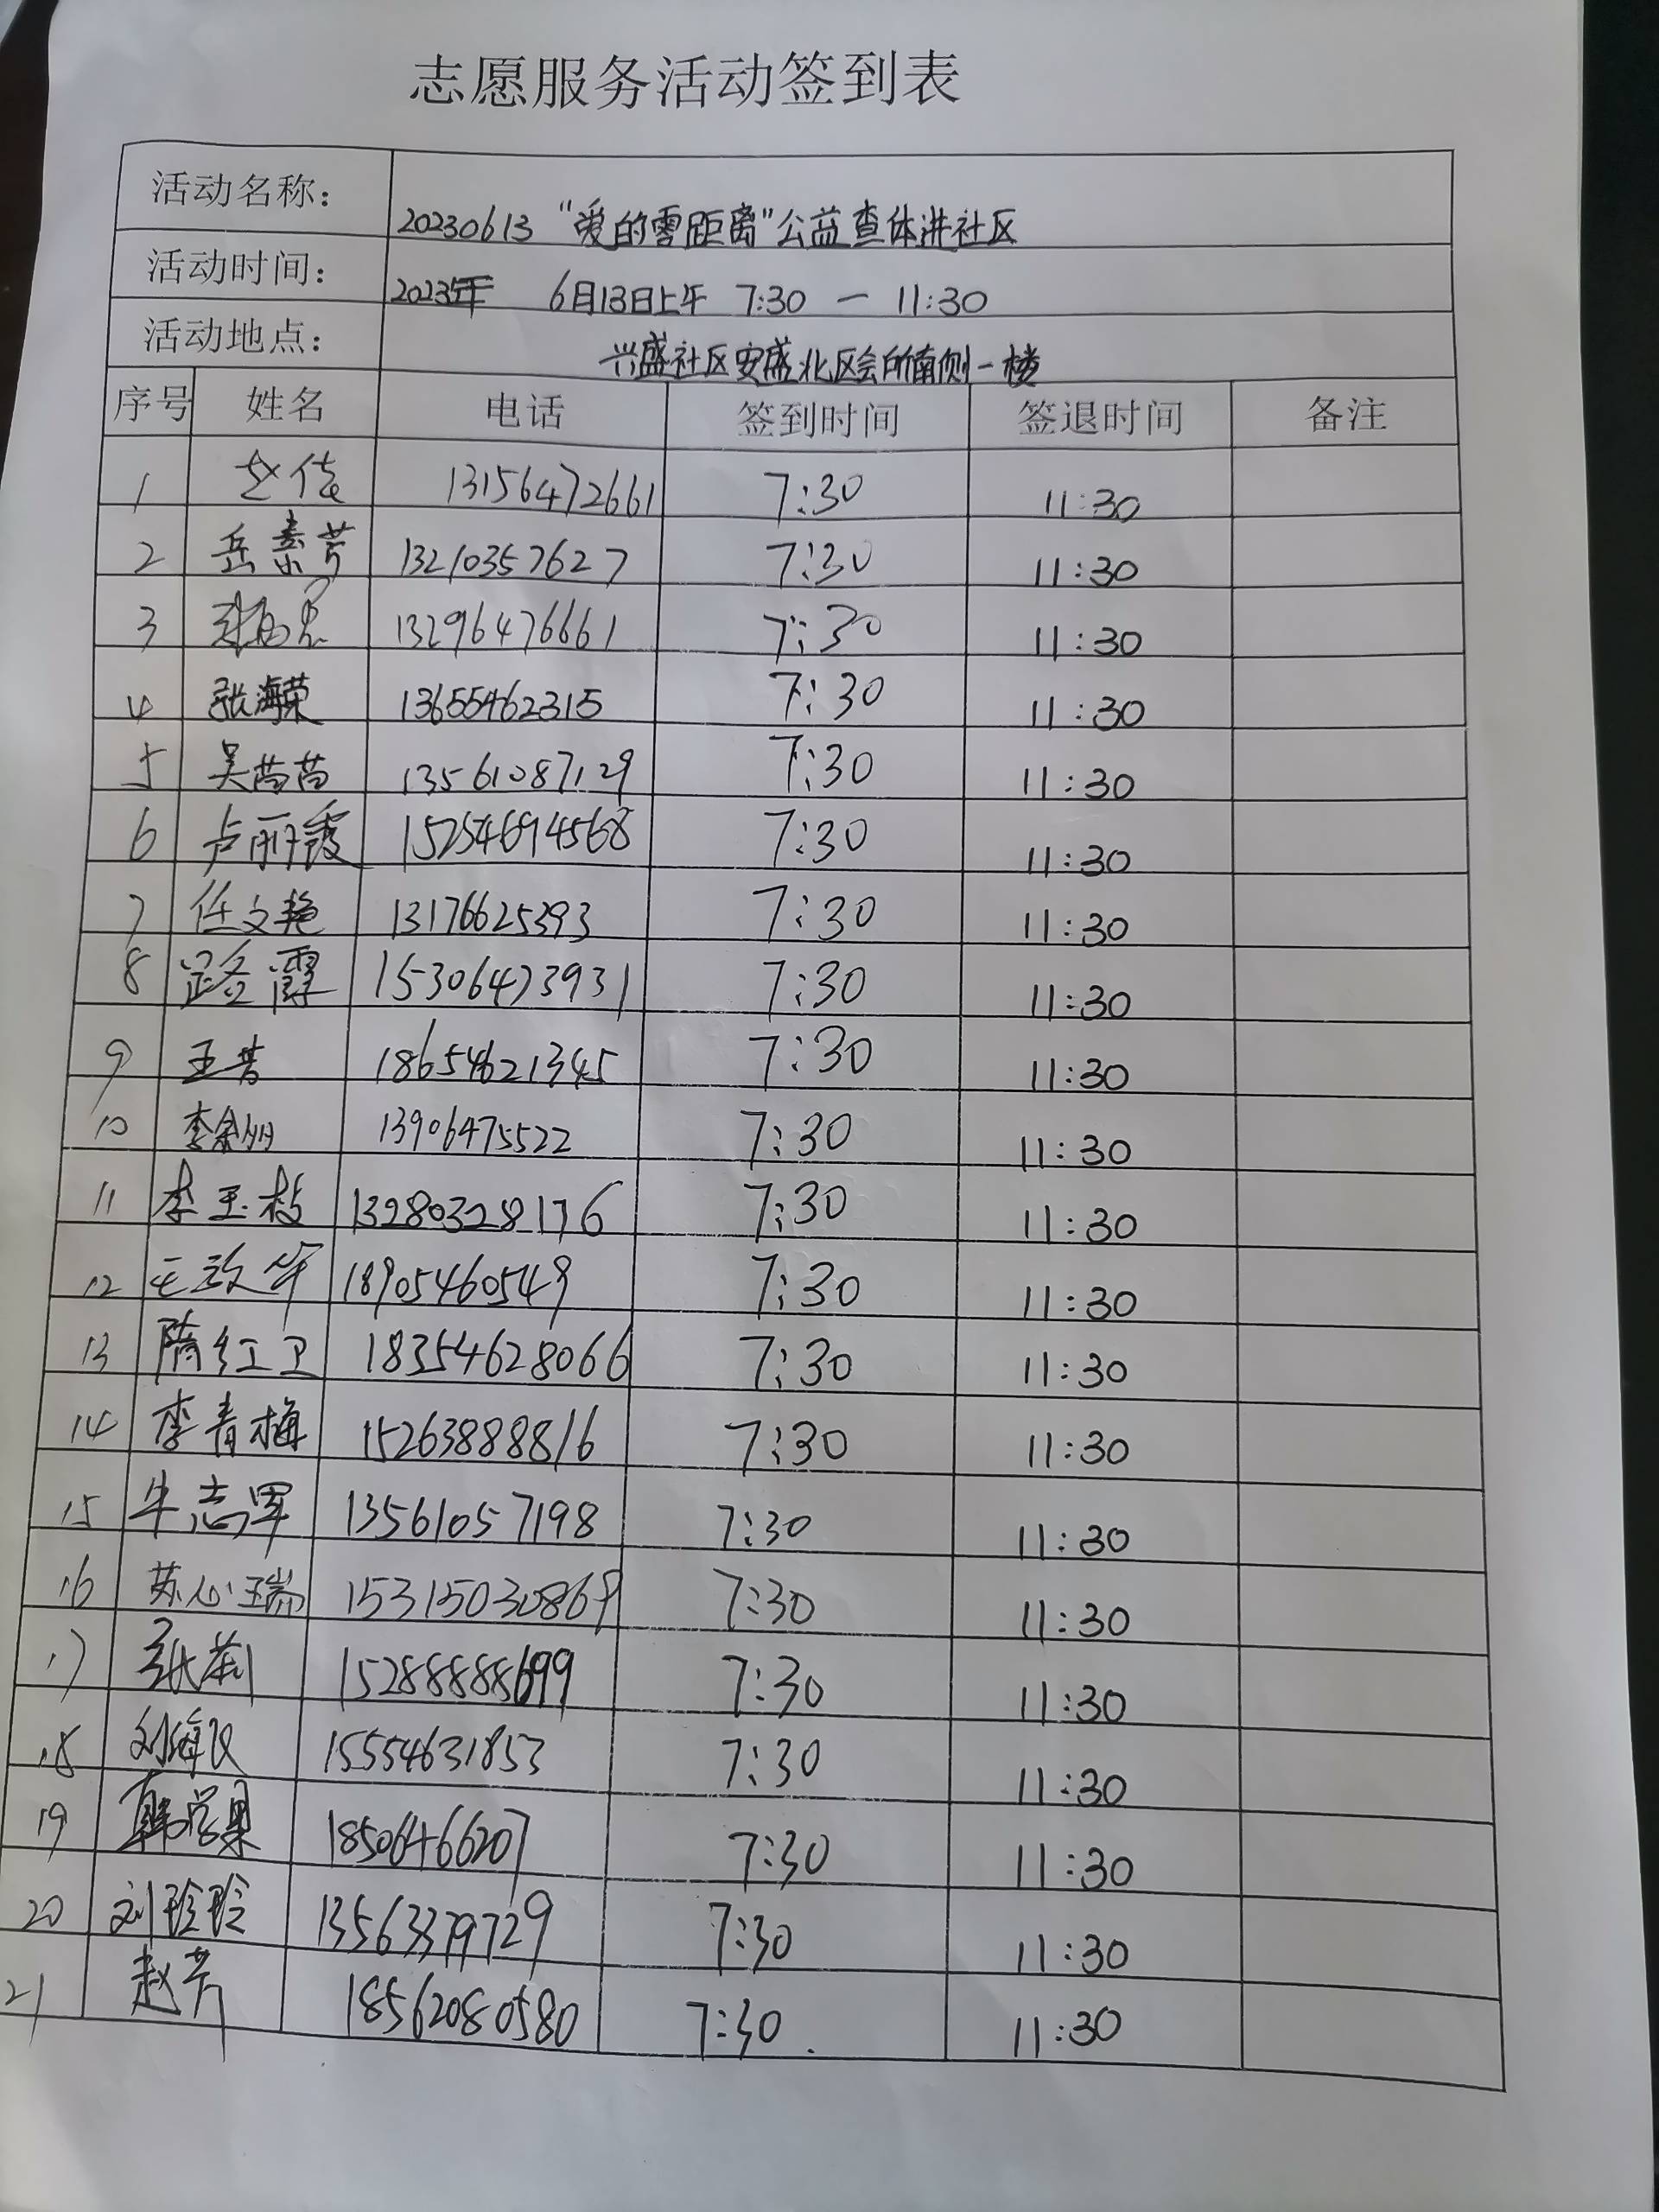 志愿服务活动签到表
活动名称： 20230613 “爱的零距离”公益查体进社区
活动时间： 2023年 6月13日上午 7:30 — 11:30
活动地点： 兴盛社区安盛北区会所南侧一楼
序号 姓名 电话 签到时间 签退时间 备注
1 13156472661 7:30 11:30
2 岳素芳 13210357627 7:30 11:30
3 13296476661 7:30 11:30
4 张海荣 13655462315 7:30 11:30
5 吴苗苗 13561087129 7:30 11:30
6 卢丽霞 15254694568 7:30 11:30
7 任文艳 13176625393 7:30 11:30
8 路霞 15306473931 7:30 11:30
9 18654621345 7:30 11:30
10 13906475522 7:30 11:30
11 李玉枝 13280328176 7:30 11:30
12 18905460549 7:30 11:30
13 隋红卫 18354628066 7:30 11:30
14 李青梅 15263888816 7:30 11:30
15 牛志军 13561057198 7:30 11:30
16 苏心瑞 15315030869 7:30 11:30
17 张莉 15288888699 7:30 11:30
18 15554631853 7:30 11:30
19 18506466207 7:30 11:30
20 刘玲玲 13563379729 7:30 11:30
21 赵芳 18562080580 7:30 11:30